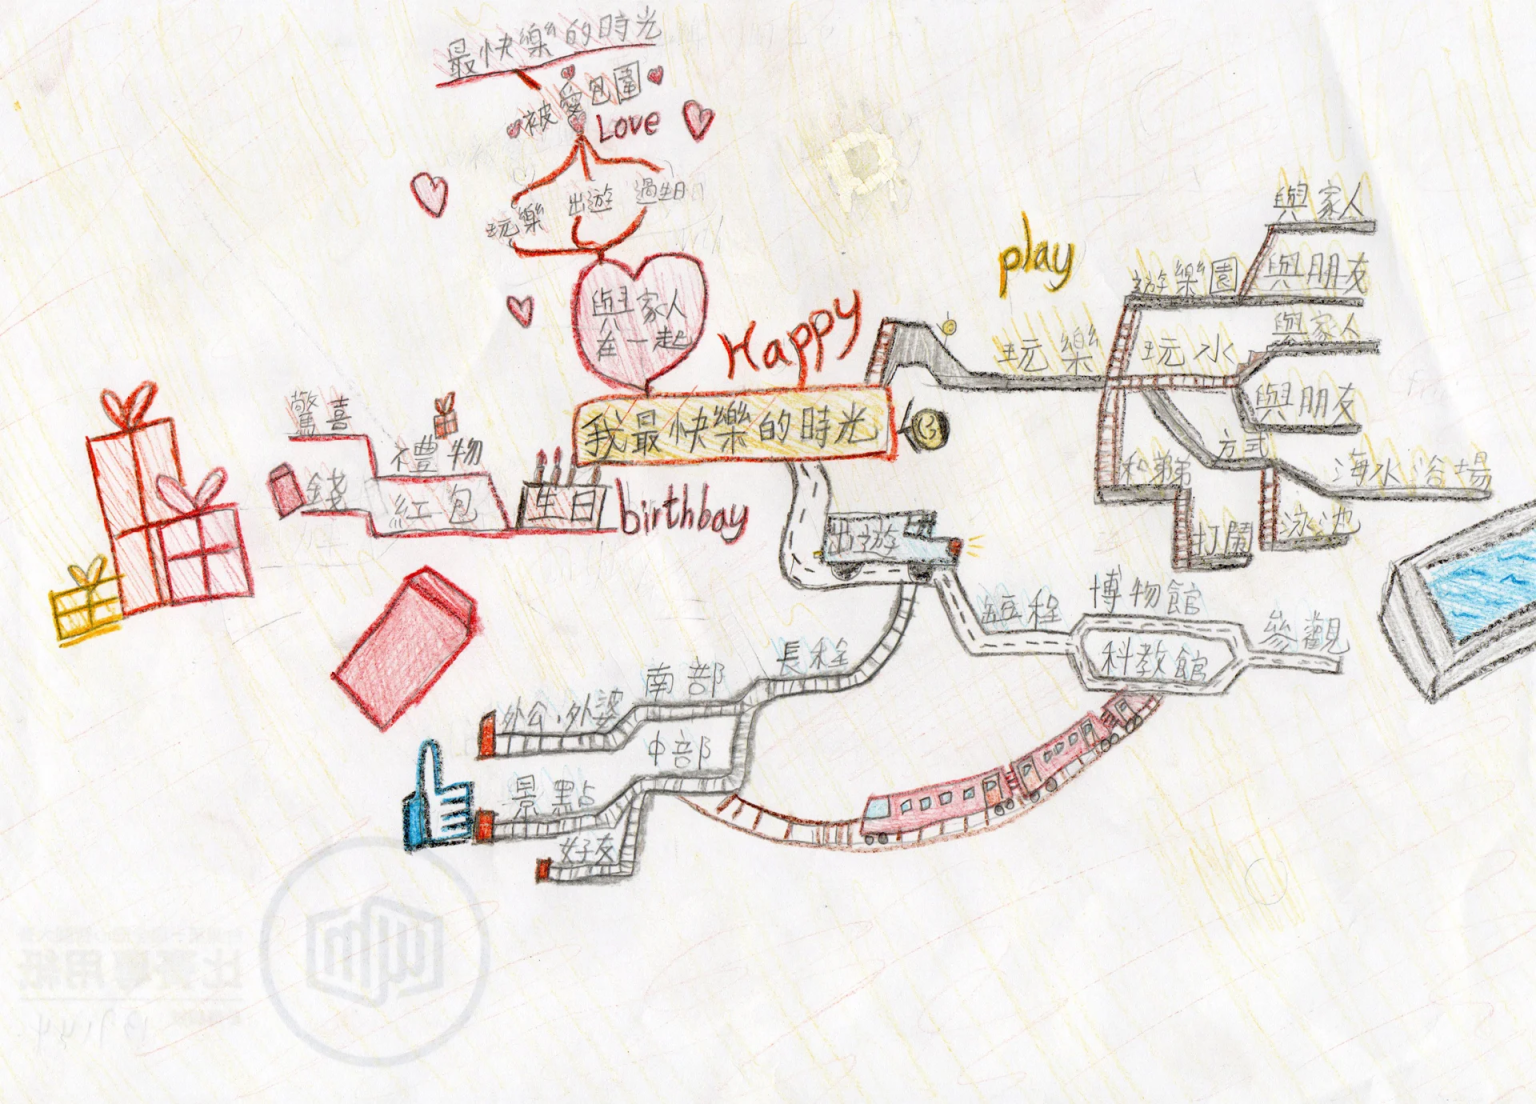 最快樂的時光
被愛包圍
Love
玩樂
出遊
過生日
與家人
在一起
Happy
我最快樂的時光
play
玩樂
遊樂園
與家人
與朋友
玩水
與家人
與朋友
方式
海水浴場
泳池
打鬧
驚喜
禮物
錢
紅包
生日
birthbay
出遊
短程
博物館
科教館
參觀
長程
南部
外公、外婆
中部
景點
好友
比賽專用紙